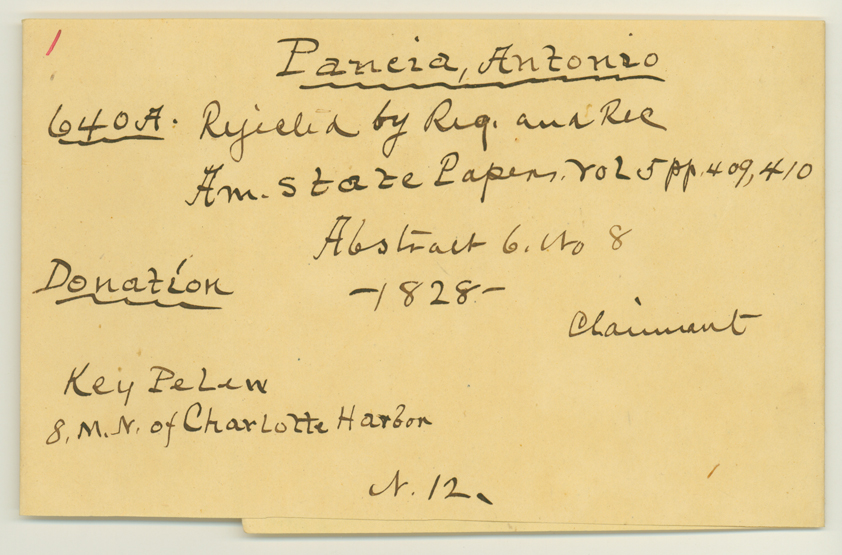 Pancia, Antonio
640A. Rejected by Reg. and Rec
Am. State Papers. Vol 5 pp. 409, 410
Abstract 6. No 8
Donation
-1828-
Claimant
Key Pelew
8. M. N. of Charlotte Harbor
N. 12.